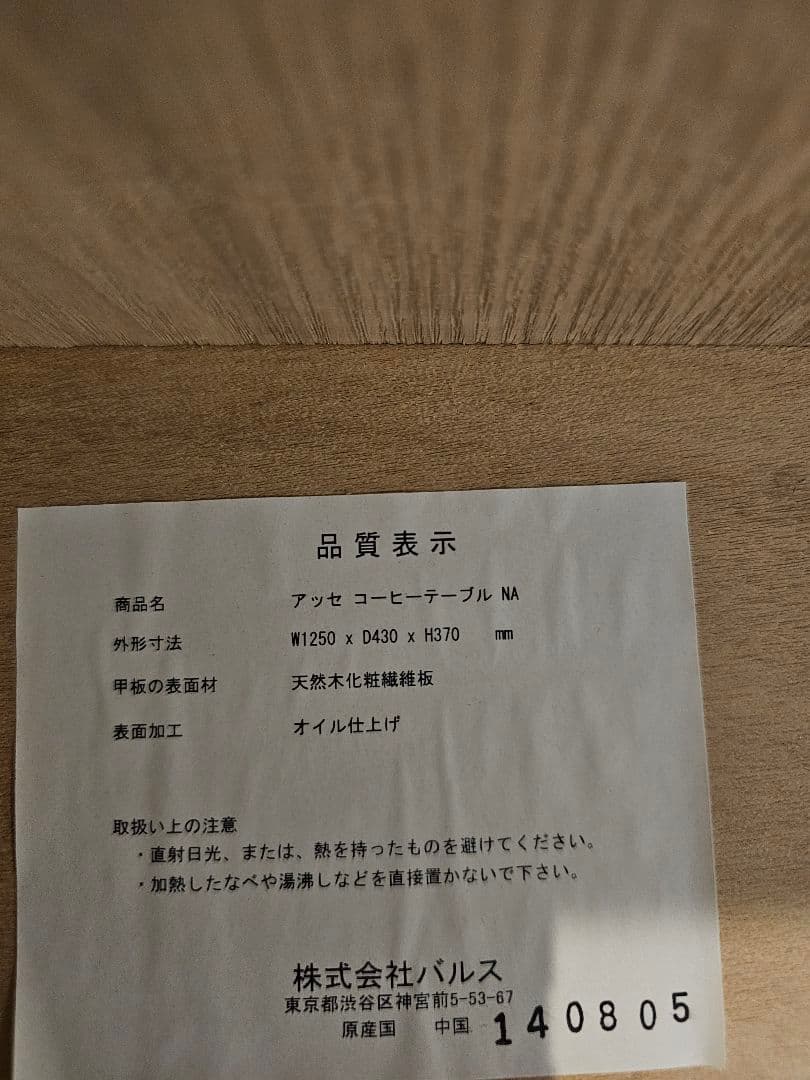 品質表示
商品名 アッセ コーヒーテーブル NA
外形寸法 W1250 x D430 x H370 mm
甲板の表面材 天然木化粧繊維板
表面加工 オイル仕上げ
取扱い上の注意
・直射日光、または、熱を持ったものを避けてください。
・加熱したなべや湯沸しなどを直接置かないで下さい。
株式会社バルス
東京都渋谷区神宮前5-53-67
原産国 中国 140805